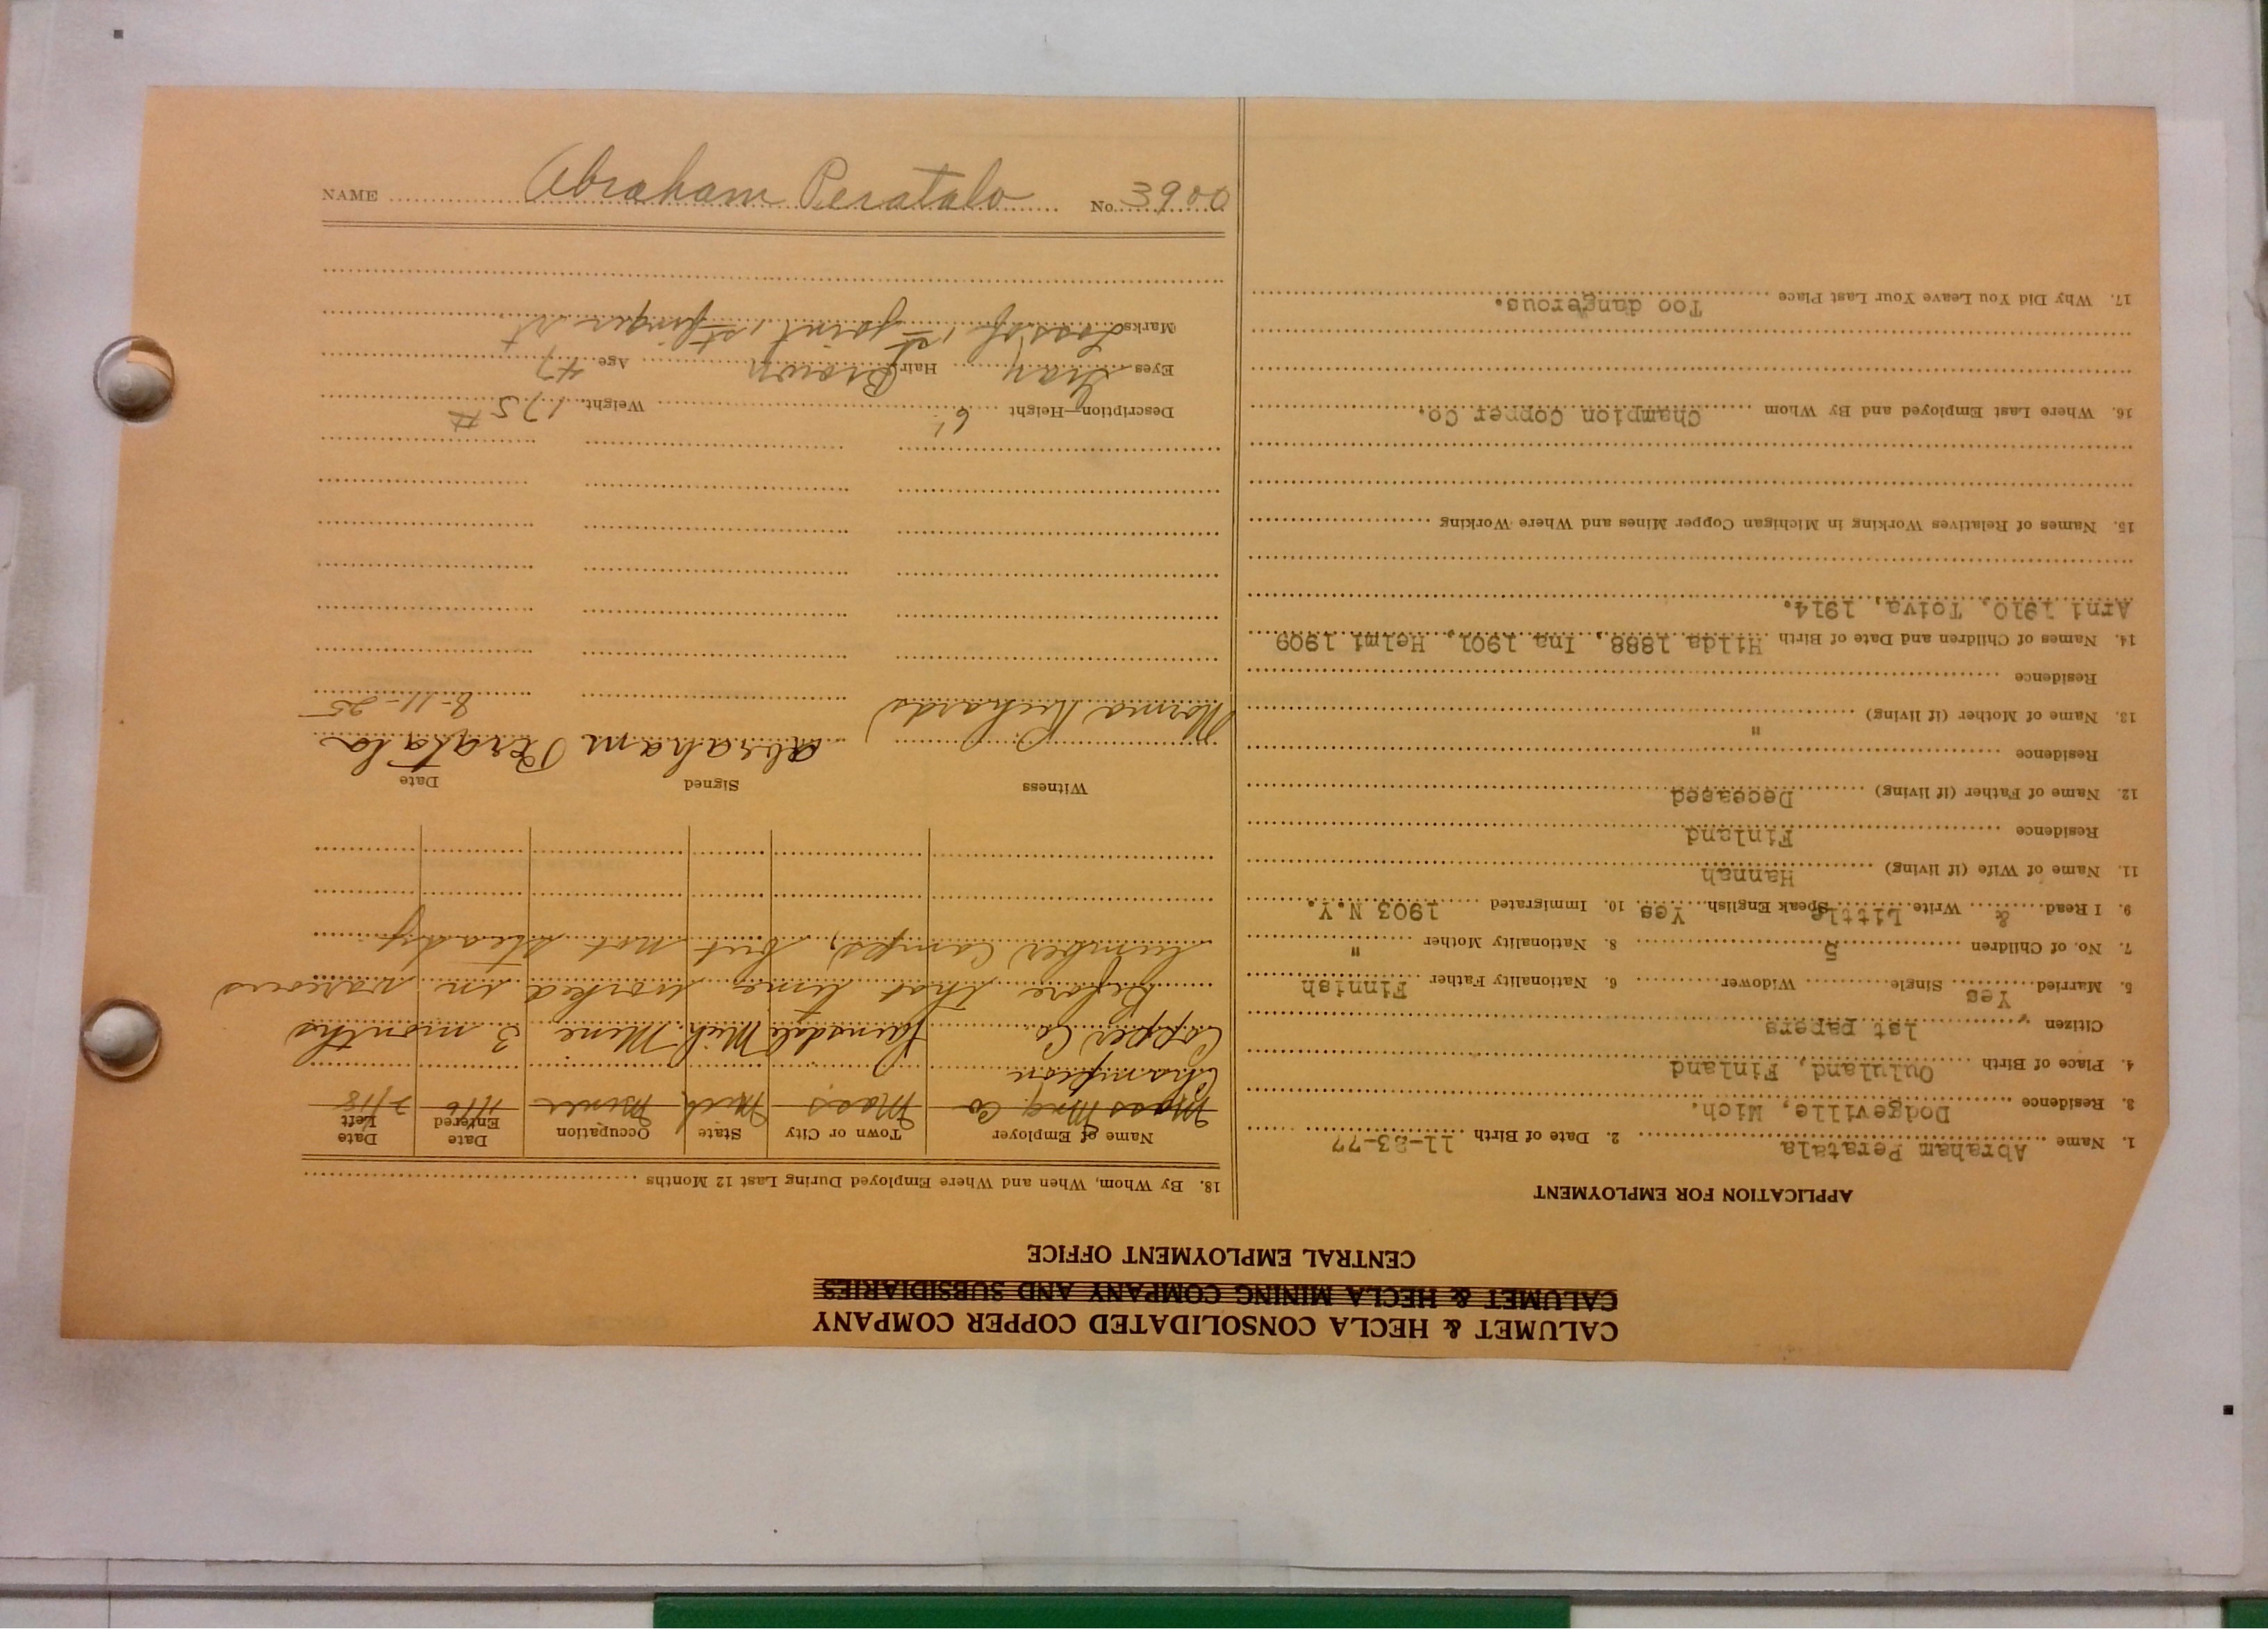 CALUMET & HECLA CONSOLIDATED COPPER COMPANY
CALUMET & HECLA MINING COMPANY AND SUBSIDIARIES
CENTRAL EMPLOYMENT OFFICE
APPLICATION FOR EMPLOYMENT
1. Name Abraham Peratala 2. Date of Birth 11-23-77
3. Residence Dodgeville, Mich.
4. Place of Birth Oululund, Finland
Citizen 1st papers
5. Married Yes Single Widower 6. Nationality Father Finnish
7. No. of Children 5 8. Nationality Mother "
9. I Read & Write Little Speak English Yes 10. Immigrated 1903 N.Y.
11. Name of Wife (if living) Hannah
Residence Finland
12. Name of Father (if living) Deceased
Residence
13. Name of Mother (if living) "
Residence
14. Names of Children and Date of Birth Hilda 1888, Ina 1901, Helmi 1909
Arni 1910, Toiva, 1914.
15. Names of Relatives Working in Michigan Copper Mines and Where Working
16. Where Last Employed and By Whom Champion Copper Co.
17. Why Did You Leave Your Last Place Too dangerous.
18. By Whom, When and Where Employed During Last 12 Months
Name of Employer Town or City State Occupation Date Entered Date Left
Mass Mng. Co Mass Mich Miner 11/16 2/18
Champion
Copper Co. Painsdale Mich. Mine 3 months
Before that time worked in various
lumber camps, but not steady
Witness Signed Date
Abraham Peratala
Norma Richards 8-11-25
Description—Height 6' Weight 175 #
Eyes Gray Hair Brown Age 47
Marks Loss of 1st joint 1st finger rt
NAME Abraham Peratalo No. 3900